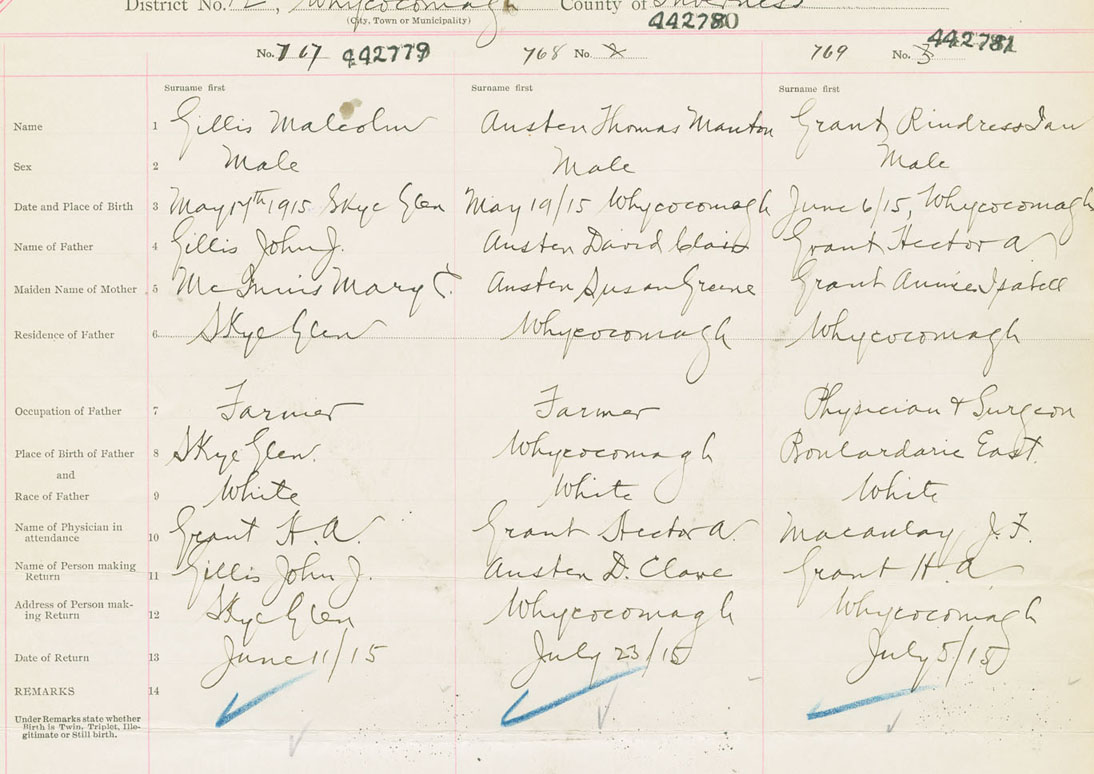 District No. 12, Whycocomagh County of Inverness
(City, Town or Municipality)
442780
No. 767 442779 768 No. 2 769 No. 3 442781
Surname first Surname first Surname first
Name 1 Gillis Malcolm Austen Thomas Manton Grant Rindress Ian
Sex 2 Male Male Male
Date and Place of Birth 3 May 17th 1915 Skye Glen May 19/15 Whycocomagh June 6/15, Whycocomagh
Name of Father 4 Gillis John J. Austen David Grant Hector A
Maiden Name of Mother 5 McInnis Mary Austen Susan Greene Grant Annie Isabell
Residence of Father 6 Skye Glen Whycocomagh Whycocomagh
Occupation of Father 7 Farmer Farmer Physician & Surgeon
Place of Birth of Father 8 Skye Glen. Whycocomagh Boulardarie East.
and
Race of Father 9 White White White
Name of Physician in
attendance 10 Grant H. A. Grant Hector A. Macaulay J. F.
Name of Person making
Return 11 Gillis John J. Austen D. Clare Grant H. A
Address of Person mak-
ing Return 12 Skye Glen Whycocomagh Whycocomagh
Date of Return 13 June 11/15 July 23/15 July 5/15
REMARKS 14
Under Remarks state whether
Birth is Twin, Triplet, Ille-
gitimate or Still birth.